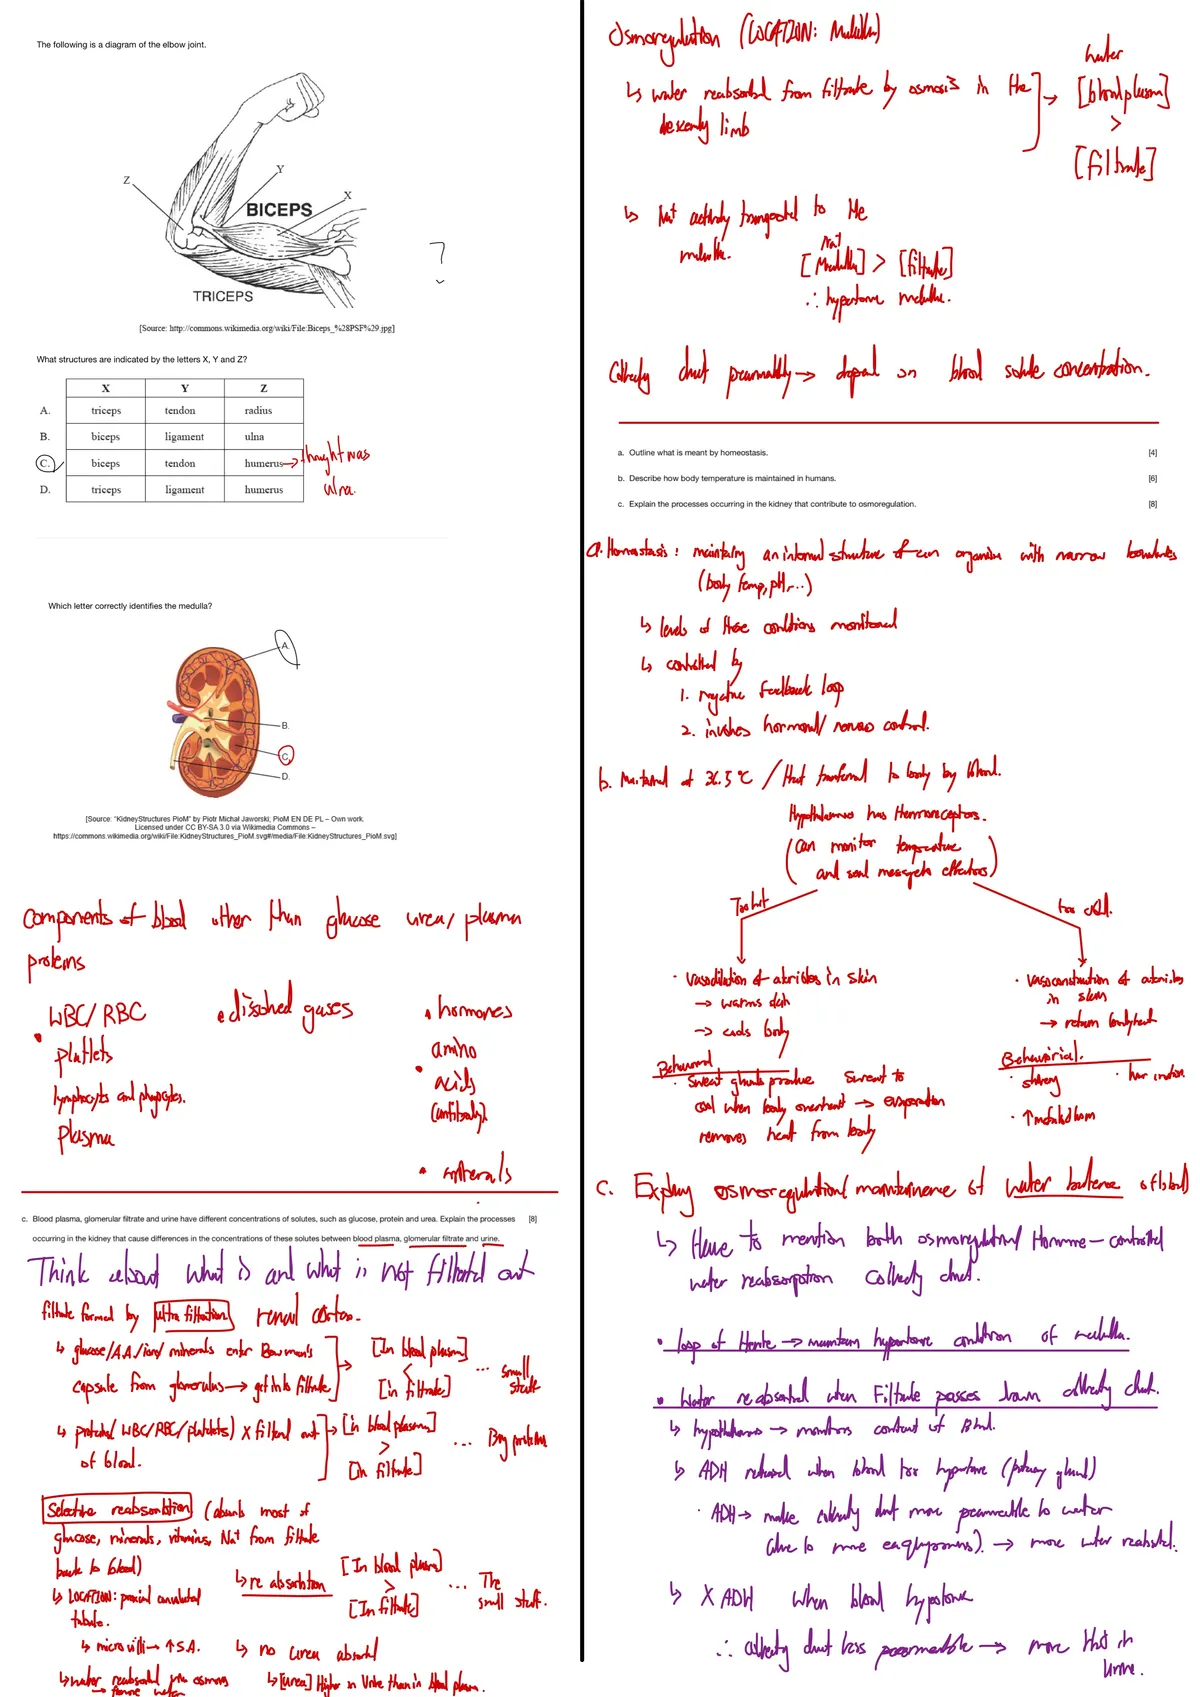 The following is a diagram of the elbow joint.
Z
Y
X
BICEPS
TRICEPS
?
[Source: http://commons.wikimedia.org/wiki/File:Biceps_%28PSF%29.jpg]
What structures are indicated by the letters X, Y and Z?
X Y Z
A. triceps tendon radius
B. biceps ligament ulna
C. biceps tendon humerus → thought was
ulna.
D. triceps ligament humerus
Which letter correctly identifies the medulla?
A.
B.
C.
D.
[Source: "KidneyStructures PioM" by Piotr Michał Jaworski; PioM EN DE PL – Own work.
Licensed under CC BY-SA 3.0 via Wikimedia Commons –
https://commons.wikimedia.org/wiki/File:KidneyStructures_PioM.svg#/media/File:KidneyStructures_PioM.svg]
Components of blood other than glucose urea/ plasma
proteins
WBC/ RBC
platlets
lymphocyts and phagocytes.
Plasma
• dissolved gases
• hormones
• amino
acids
(antibody).
• minerals
c. Blood plasma, glomerular filtrate and urine have different concentrations of solutes, such as glucose, protein and urea. Explain the processes [8]
occurring in the kidney that cause differences in the concentrations of these solutes between blood plasma, glomerular filtrate and urine.
Think about what is and what is not filtrated out
filtrate formed by ultra filtration renal cortex.
↳ glucose/A.A/ion/ minerals enter Bowman's
capsule from glomerulus → get into filtrate
→ [In blood plasm]
<
[in filtrate]
... small
stuff
↳ protein/ WBC/RBC/platelets) X filtered out
of blood.
→ [in blood plasm]
>
[In filtrate]
... Big protein
Selective reabsorbtion (absorb most of
glucose, minerals, vitamins, Na⁺ from filtrate
back to blood)
↳ LOCATION: proximal convoluted
tubule.
↳ micro villi → ↑ S.A.
↳ water reabsorbed via osmosis
↳ re absorbtion
[In blood plasm]
>
[In filtrate]
... The
small stuff.
↳ no urea absorbed
↳ [urea] Higher in urine than in blood plasm.
Osmoregulation (LOCATION: Medulla)
↳ water reabsorbed from filtrate by osmosis in the
descendy limb
→ water
[blood plasm]
>
[filtrate]
↳ Na⁺ actively transported to the
medulla.
Na⁺
[Medulla] > [filtrate]
∴ hypertonic medulla.
Collecty duct permeability → depend on blood solute concentration.
a. Outline what is meant by homeostasis. [4]
b. Describe how body temperature is maintained in humans. [6]
c. Explain the processes occurring in the kidney that contribute to osmoregulation. [8]
a. Homeostasis: maintaing an internal structure of an organism with narrow boundaries
(body temp, pH, ...)
↳ levels of these conditions monitored
↳ controlled by
1. negative feedback loop
2. involves hormonal/ nervous control.
b. Maintained at 36.5°C / Heat transferred to body by blood.
Hypothalamus has thermoreceptors.
(can monitor temperature
and send message to effectors)
Too hot
• vasodilation of arterioles in skin
→ warms skin
→ cools body
Behavioural
• sweat glands produce sweat to
cool when body overheat → evaporation
removes heat from body
too cold.
• vasoconstriction of arterioles
in skin
→ retain bodyheat
Behavioural.
• shivering
• hair erection
• ↑ metabolism
c. Explaing osmoregulation/ maintainence of water balance of (blood)
↳ Have to mention both osmoregulation/ Hormone-controlled
water reabsorption collecty duct.
• loop of Henle → maintain hypertonic condition of medulla.
• Water reabsorbed when Filtrate passes down collecty duct.
↳ hypothalamus → monitors content of blood.
↳ ADH released when blood too hypertonic (pituitary gland)
• ADH → make collecty duct more permeable to water
(due to more eaquaporins). → more water reabsorbed.
↳ X ADH when blood hypotonic
∴ collecty duct less permeable → more that in
urine.